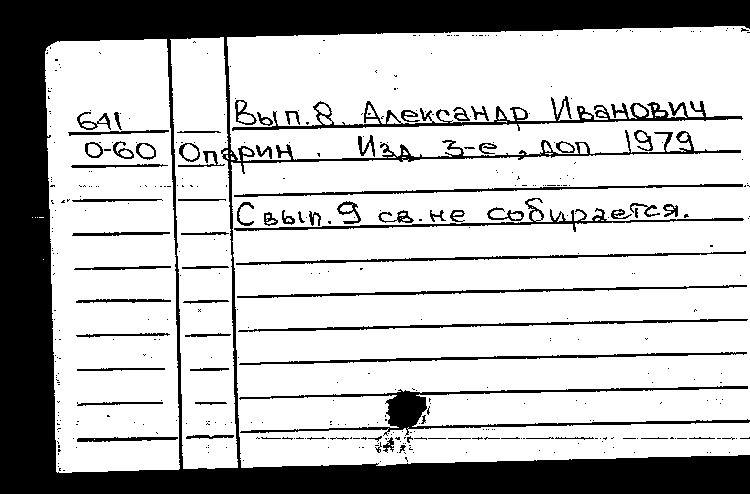 641 Вып. 8. Александр Иванович
О-60 Опарин. Изд. 3-е, доп 1979
С вып. 9 св. не собирается.